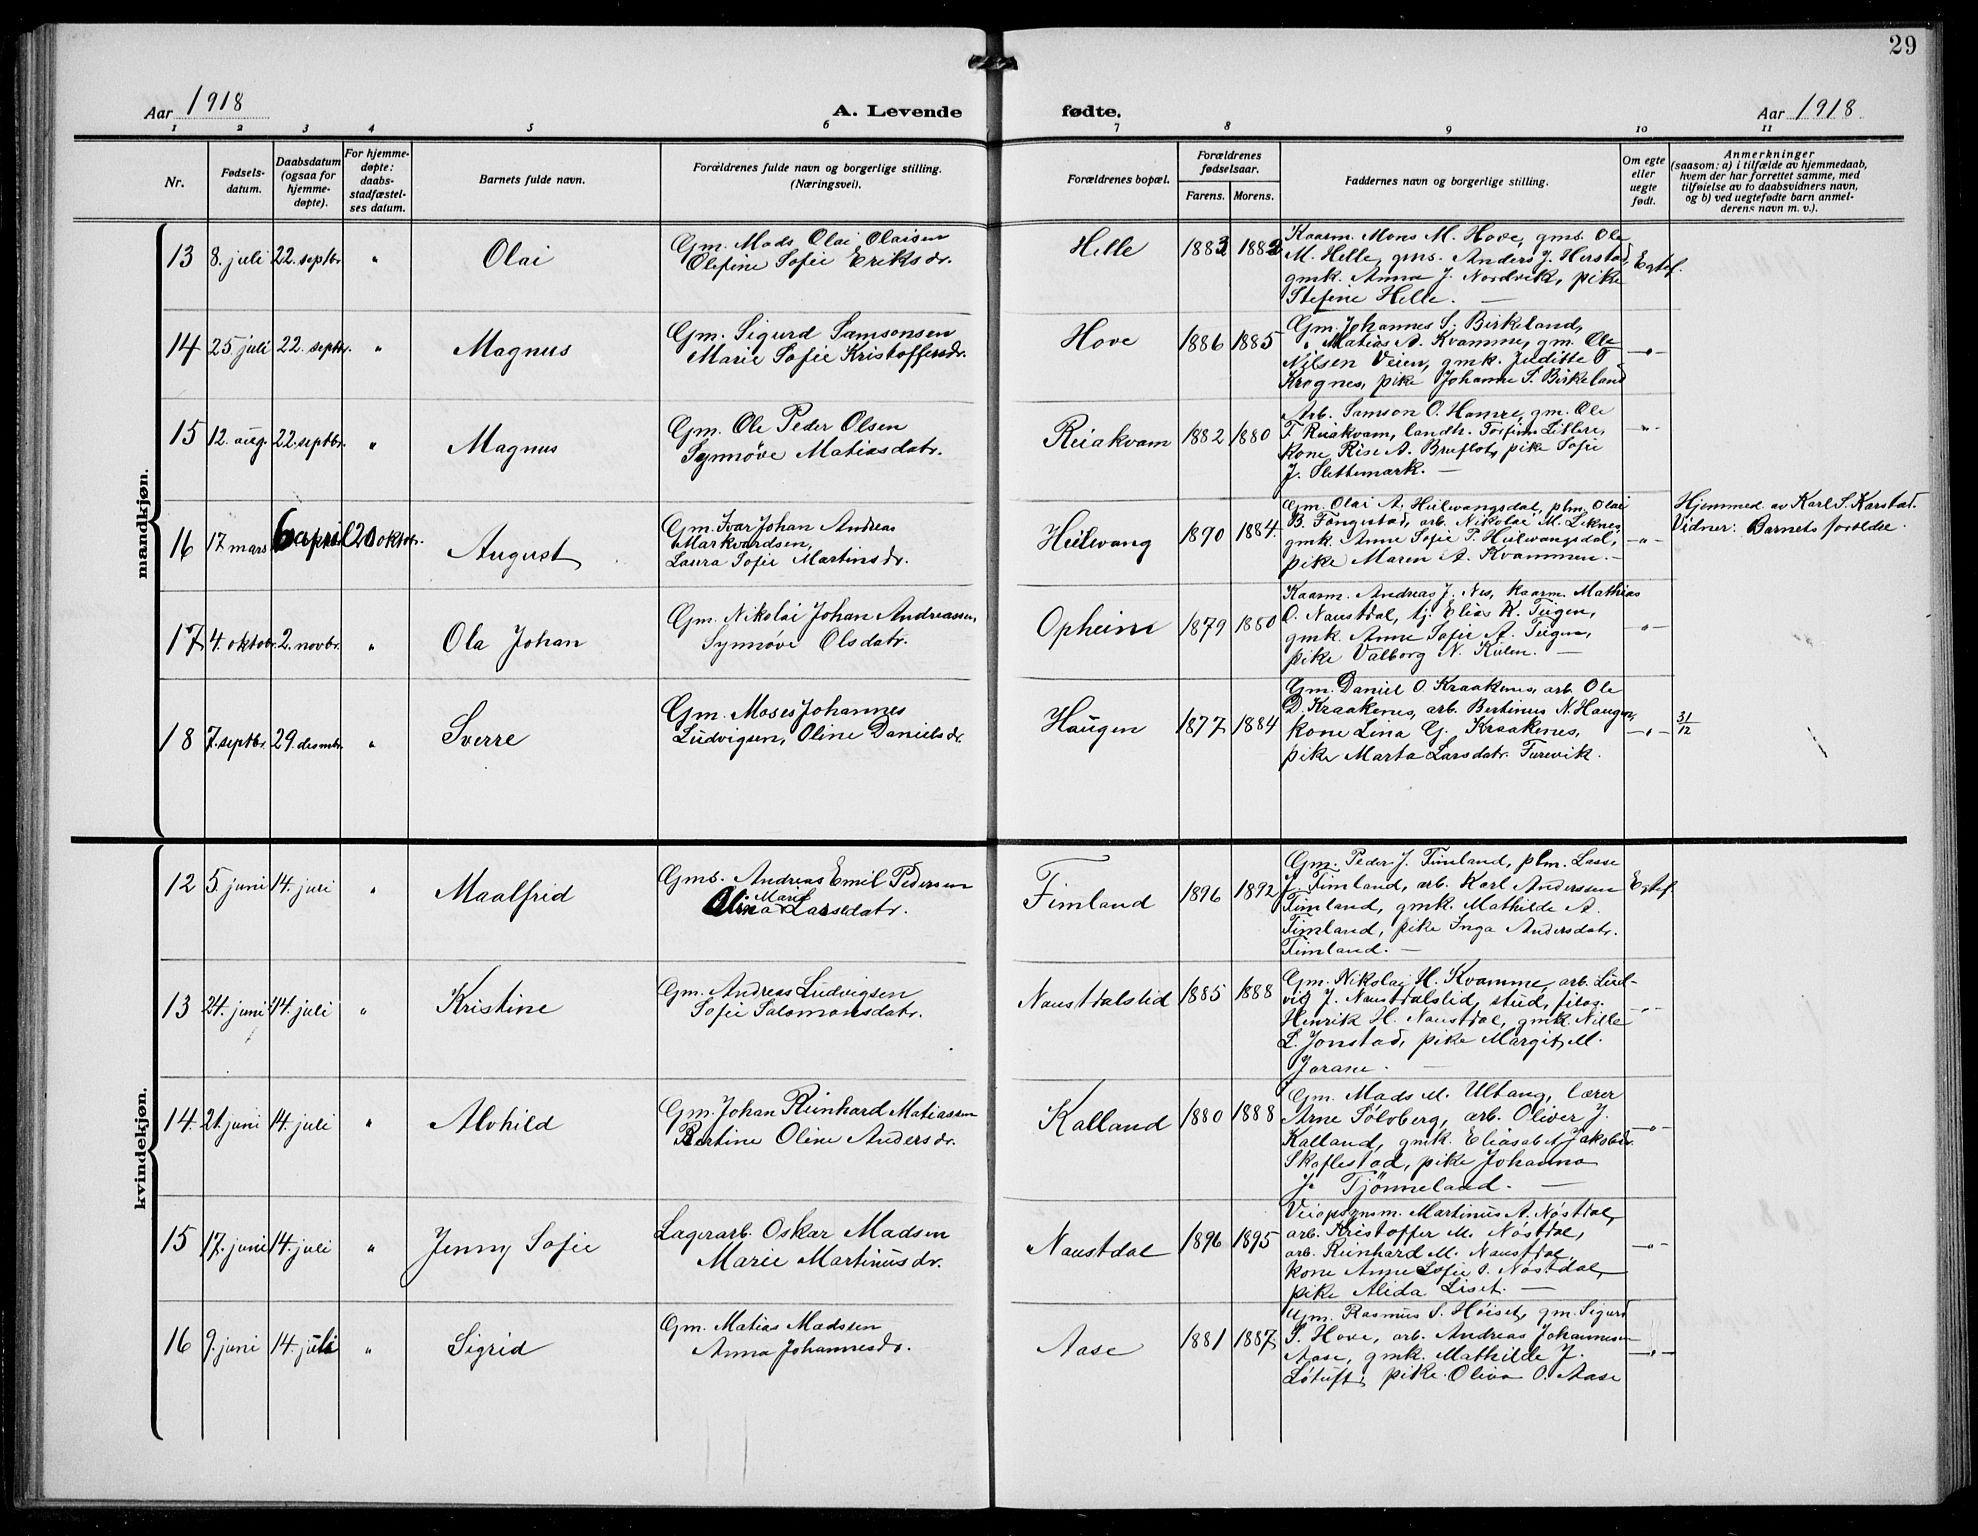 29
Aar 1918
A. Levende
fødte.
Aar 1918
1 2 3 4 5 6 7 8 9 10 11
Nr.
Fødsels-
datum.
Daabsdatum
(ogsaa for
hjemme-
døpte).
For hjemme-
døpte:
daabs-
stadfæstel-
ses datum.
Barnets fulde navn.
Forældrenes fulde navn og borgerlige stilling.
(Næringsvei).
Forældrenes bopæl.
Forældrenes
fødselsaar.
Farens. Morens.
Faddernes navn og borgerlige stilling.
Om egte
eller
uegte
født.
Anmerkninger
(saasom: a) i tilfælde av hjemmedaab,
hvem der har forrettet samme, med
tilføielse av to daabsvidners navn,
og b) ved uegtefødte barn anmel-
derens navn m. v.).
mandkjøn.
13 8. juli 22. septbr. " Olai
Gm. Mads Olai Olaisen
Olefine Sofie Eriksdr.
Helle 1883 1882
Kaarm. Mons M. Hove, gms. Ole
M. Helle, gms. Anders J. Herstad,
gmk. Anna J. Nordvik, pike
Stefine Helle. —
Egtef.
14 25. juli 22. septbr. " Magnus
Gm. Sigurd Samsonsen
Marie Sofie Kristoffersdr.
Hove 1886 1885
Gm. Johannes S. Birkeland,
" Matias A. Kvamme, gm. Ole
Nilsen Veien, gmk. Juditte T
Krognes, pike Johanne S. Birkeland
—"—
15 12. aug. 22. septbr. " Magnus
Gm. Ole Peder Olsen
Synnøve Matiasdatr.
Reiakvam 1882 1880
Arb. Samson O. Hamre, gm. Ole
T. Reiakvam, landh. Torfinn Litlere,
kone Rise A. Bruflot, pike Sofie
J. Slettemark. —
—"—
16 17 mars 6 april 20 oktbr. August
Gm. Ivar Johan Andreas
Markvardsen,
Laura Sofie Martinsdr.
Heilevang 1890 1884.
Gm. Olai A. Heilevangsdal, plm. Olai
B. Fongestad, arb. Nikolai M. Leknes,
gmk Anne Sofie P. Heilevangsdal,
pike Maren A. Kvammen. —
—"—
Hjemmed. av Karl S. Karstad.
Vidner: Barnets foreldre.
17 4. oktobr. 2. novbr. " Ola Johan
Gm. Nikolai Johan Andreassen,
Synnøve Olsdatr.
Opheim 1879 1880
Kaarm. Andreas J. Nes, kaarm. Mathias
O. Naustdal, tj. Elias K. Teigen,
gmk. Anne Sofie A. Teigen,
pike Valborg N. Kulen. —
—"—
18 7. septbr. 29. desmbr. " Sverre
Gm. Moses Johannes
Ludvigsen, Oline Danielsdr.
Haugen 1877 1884
Gm. Daniel O. Kraakenes, arb. Ole
D. Kraakenes, arb. Bertinus N. Haugen,
kone Lina G. Kraakenes,
pike Marta Larsdatr. Furevik.
—"—
31/12
kvindekjøn.
12 5. juni 14. juli " Maalfrid
Gms. Andreas Emil Pedersen
Marie
Olina Larsdatr.
Fimland 1896 1892
Gm. Peder J. Fimland, plm. Lasse
J. Fimland, arb. Karl Anderssen
Fimland, gmk. Mathilde A.
Fimland, pike Inga Andersdatr.
Fimland. —
Egtef.
13 24. juni 14. juli " Kristine
Gm. Andreas Ludvigsen
Sofie Salomonsdatr.
Naustdalslid 1885 1888
Gm. Nikolai H. Kvamme, arb. Lud-
vig J. Naustdalslid, stud. filog.
Henrik H. Naustdal, gmk. Nille
L. Jonstad, pike Margit M.
Jorane. —
—"—
14 21. juni 14. juli " Alvhild
Gm. Johan Reinhard Matiassen
Bertine Oline Andersdr.
Kalland 1880 1888
Gm. Mads M. Ullang, lærer
Arne Solvberg, arb. Oliver J.
Kalland, gmk. Eliasabet Jakobdr.
Skaflestad, pike Johanna
J. Tjønneland. —
—"—
15 17. juni 14. juli " Jenny Sofie
Lagerarb. Oskar Madsen
Marie Martinusdr.
Naustdal 1896 1895
Veiopsynsm. Martinus A. Nøstdal,
arb. Kristoffer M. Nøstdal,
arb. Reinhard M. Naustdal,
kone Anne Sofie O. Nøstdal,
pike Alida Liset. —
—"—
16 9. juni 14. juli " Sigrid
Gm. Matias Madssen
Anna Johannesdr.
Aase 1881 1887
Gm. Rasmus S. Høiset, gm. Sigurd
S. Hove, arb. Andreas Johannesen
Aase, gmk. Mathilde J.
Løtuft, pike Oliva O. Aase
—"—